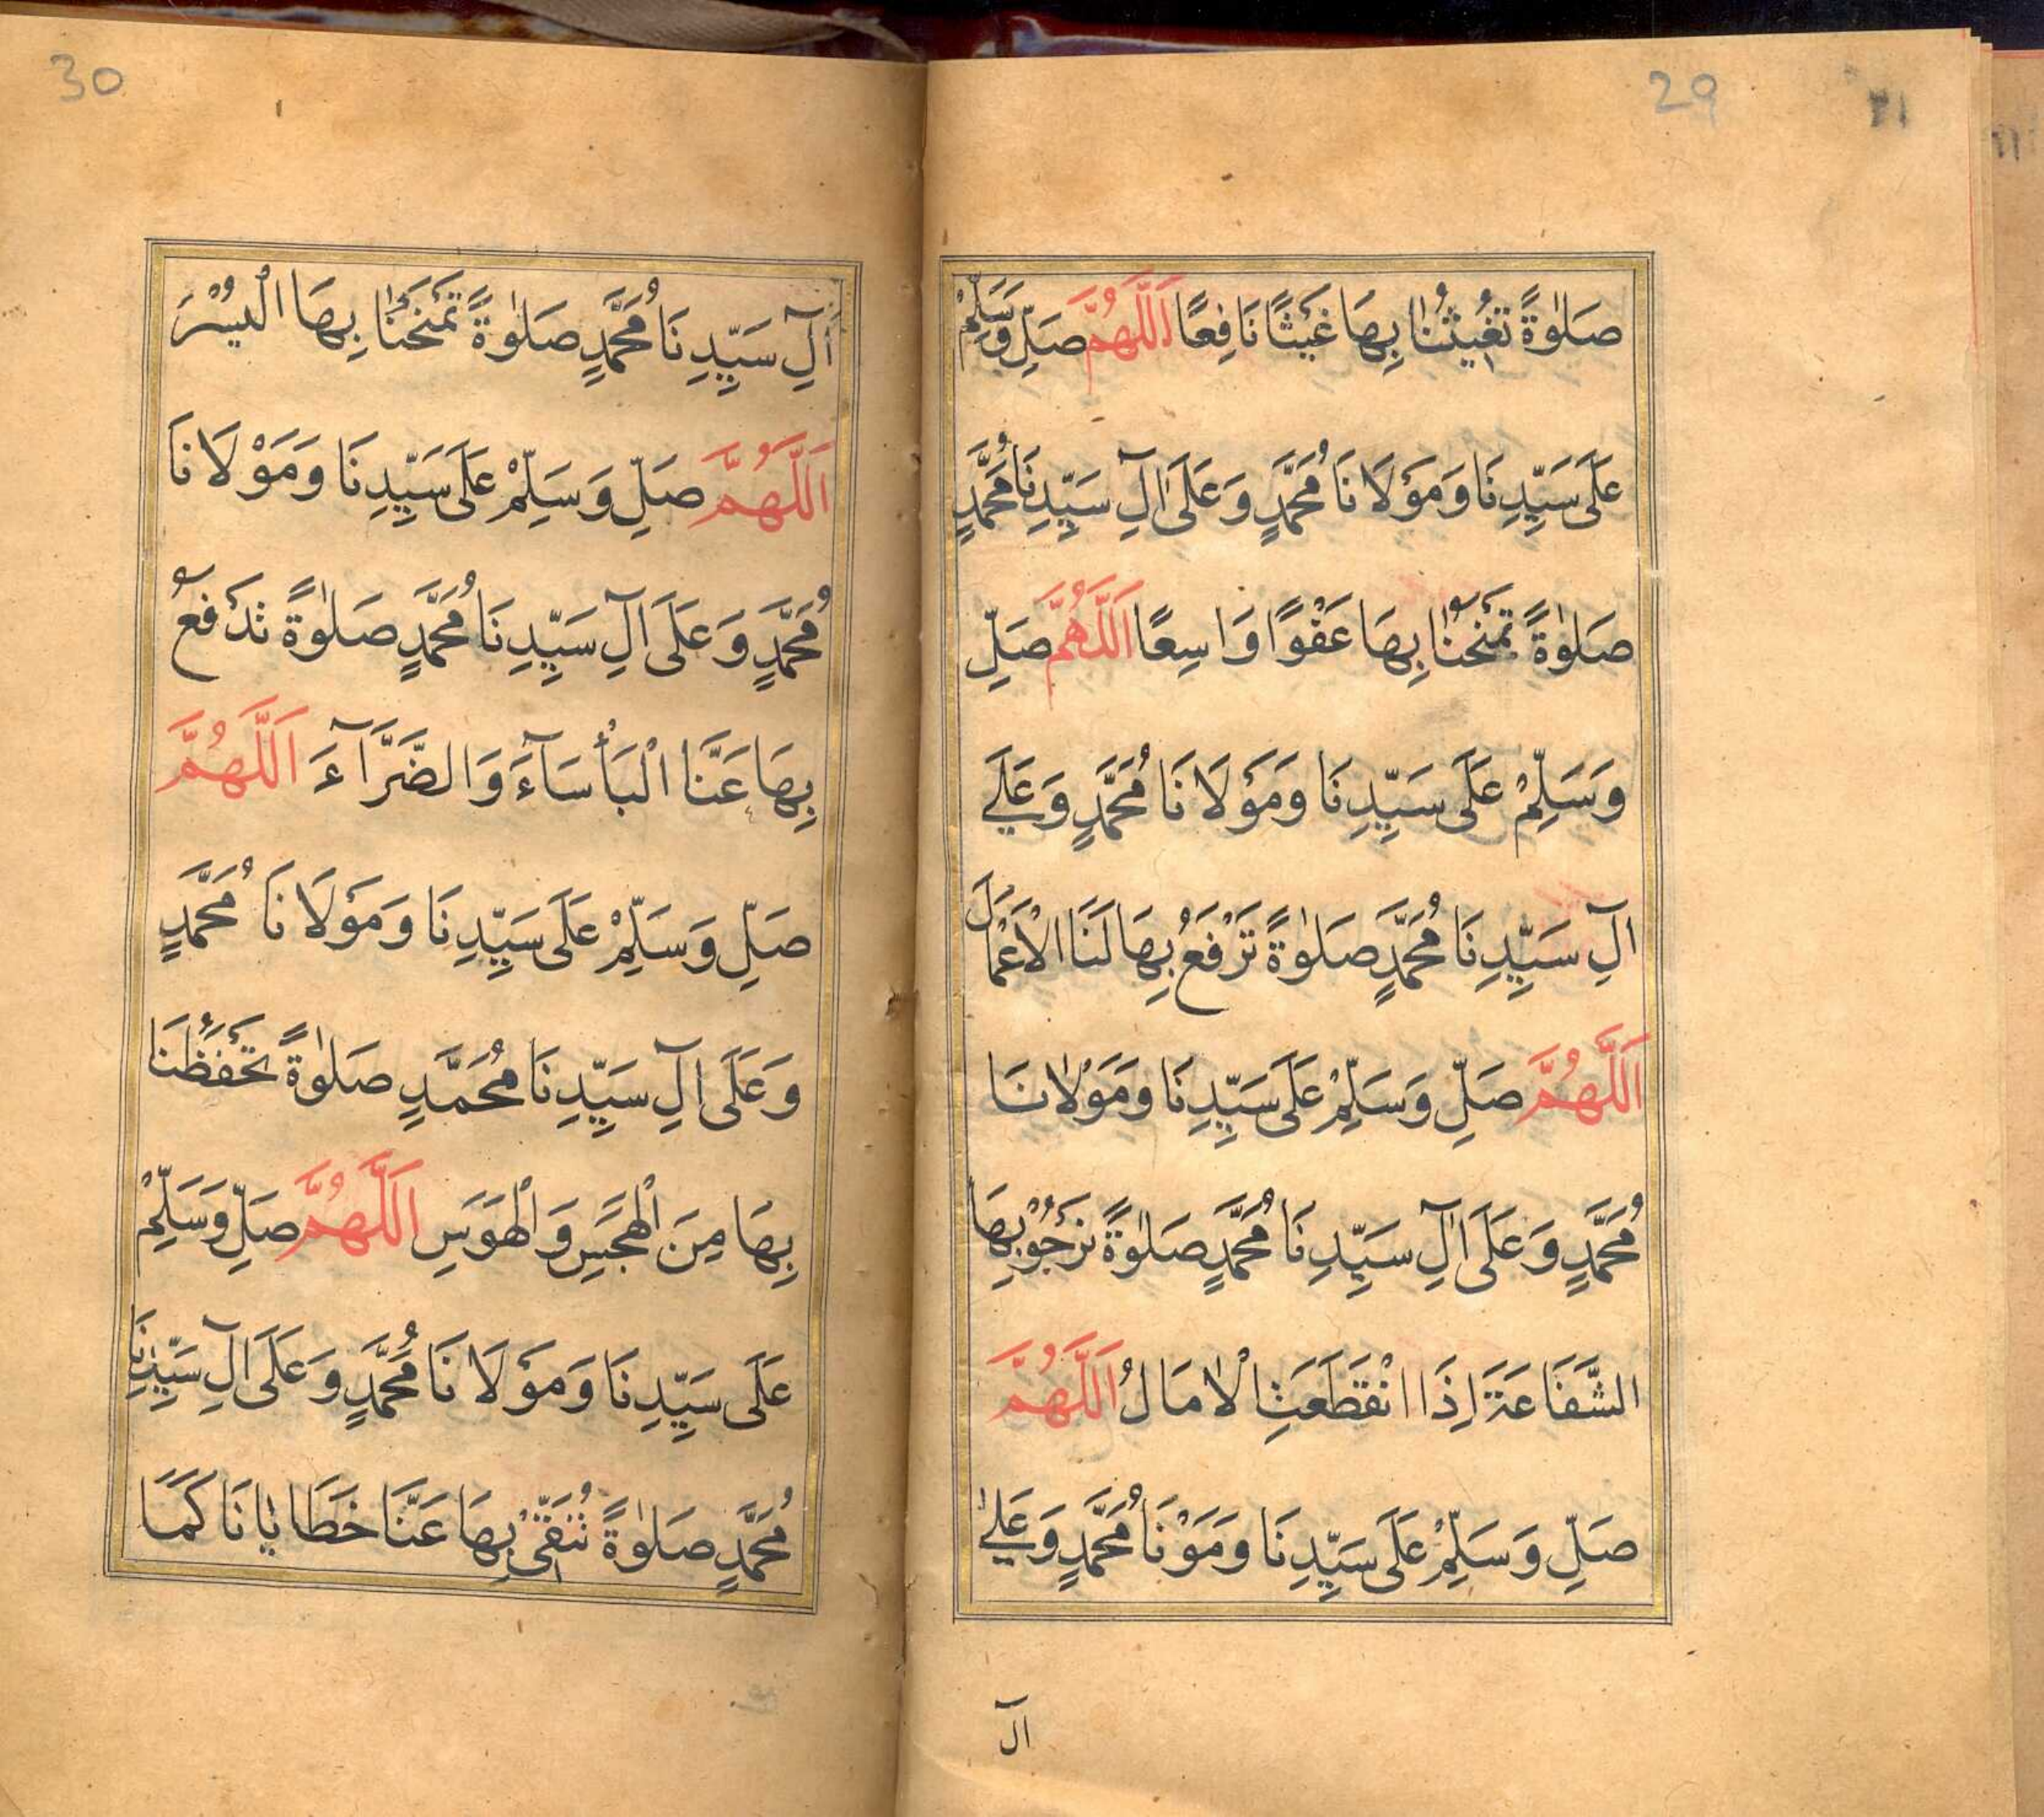 29
صَلٰوةً تُغِيْثُنَا بِهَا غَيْثًا نَافِعًا اَللّٰهُمَّ صَلِّ وَسَلِّمْ
عَلَى سَيِّدِنَا وَمَوْلَانَا مُحَمَّدٍ وَعَلَى اٰلِ سَيِّدِنَا مُحَمَّدٍ
صَلٰوةً تَمْنَحُنَا بِهَا عَفْوًا وَاسِعًا اَللّٰهُمَّ صَلِّ
وَسَلِّمْ عَلَى سَيِّدِنَا وَمَوْلَانَا مُحَمَّدٍ وَعَلٰے
اٰلِ سَيِّدِنَا مُحَمَّدٍ صَلٰوةً تَرْفَعُ بِهَا لَنَا الْاَعْمَالَ
اَللّٰهُمَّ صَلِّ وَسَلِّمْ عَلَى سَيِّدِنَا وَمَوْلَانَا
مُحَمَّدٍ وَعَلَى اٰلِ سَيِّدِنَا مُحَمَّدٍ صَلٰوةً نَرْجُوْ بِهَا
الشَّفَاعَةَ اِذَا انْقَطَعَتِ الْاٰمَالُ اَللّٰهُمَّ
صَلِّ وَسَلِّمْ عَلَى سَيِّدِنَا وَمَوْنَا مُحَمَّدٍ وَعَلٰے
اٰل
30
اٰلِ سَيِّدِنَا مُحَمَّدٍ صَلٰوةً تَمْنَحُنَا بِهَا الْيُسْرَ
اَللّٰهُمَّ صَلِّ وَسَلِّمْ عَلَى سَيِّدِنَا وَمَوْلَانَا
مُحَمَّدٍ وَعَلَى اٰلِ سَيِّدِنَا مُحَمَّدٍ صَلٰوةً تَدْفَعُ
بِهَا عَنَّا الْبَأْسَآءَ وَالضَّرَّآءَ اَللّٰهُمَّ
صَلِّ وَسَلِّمْ عَلَى سَيِّدِنَا وَمَوْلَانَا مُحَمَّدٍ
وَعَلَى اٰلِ سَيِّدِنَا مُحَمَّدٍ صَلٰوةً تَحْفَظُنَا
بِهَا مِنَ الْهَجَسِ وَالْهَوَسِ اَللّٰهُمَّ صَلِّ وَسَلِّمْ
عَلَى سَيِّدِنَا وَمَوْلَانَا مُحَمَّدٍ وَعَلَى اٰلِ سَيِّدِنَا
مُحَمَّدٍ صَلٰوةً تُنَقِّىْ بِهَا عَنَّا خَطَايَانَا كَمَا